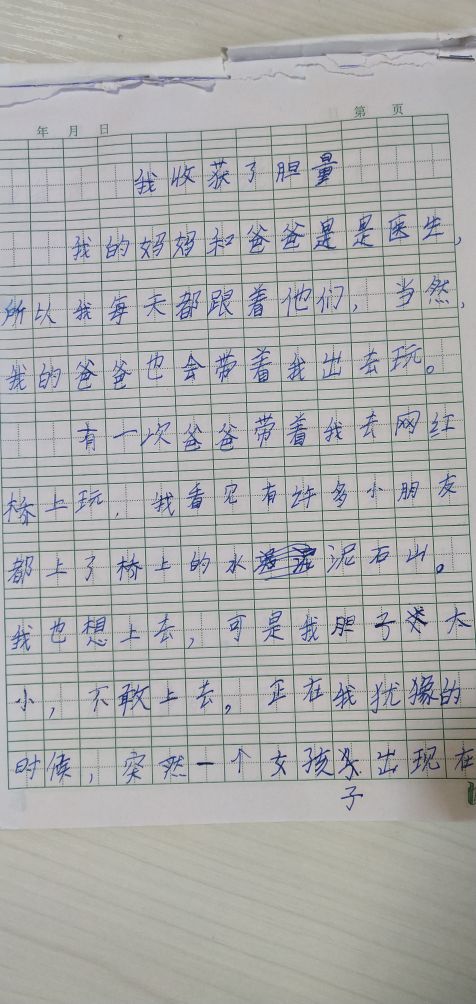 年 月 日 第 页
我收获了胆量
我的妈妈和爸爸是是医生,
所以我每天都跟着他们,当然,
我的爸爸也会带着我出去玩。
有一次爸爸带着我去网红
桥上玩,我看见有许多小朋友
都上了桥上的水泥石山。
我也想上去,可是我胆子太
小,不敢上去。正在我犹豫的
时候,突然一个女孩出现在
子